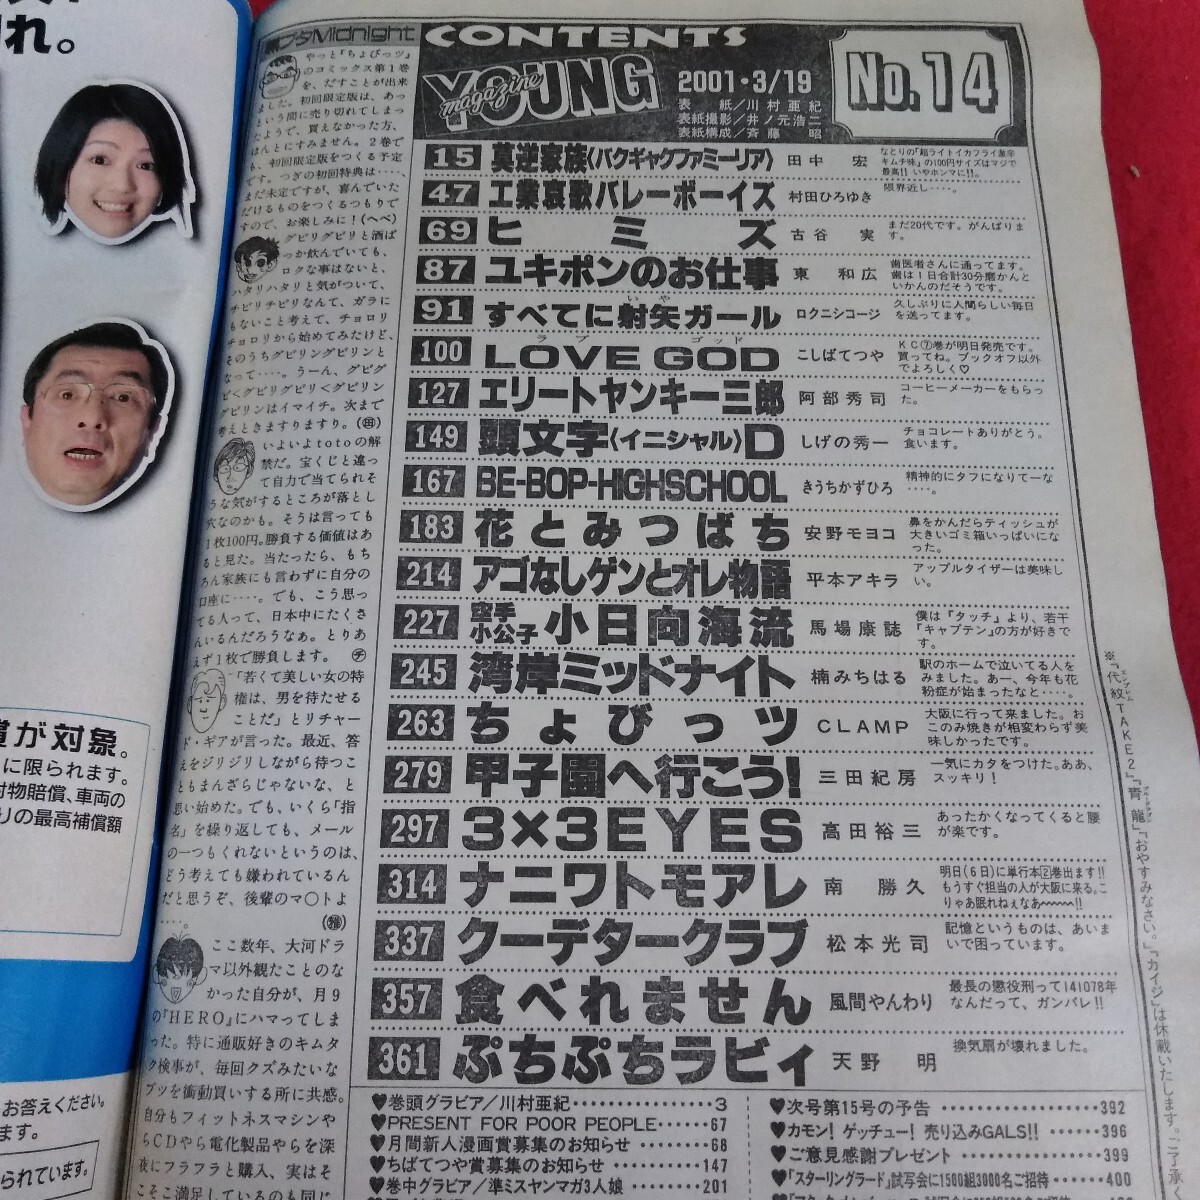 れ。
償が対象。
に限られます。
対物賠償、車両の
りの最高補償額
お答えください。
ます。
られています。
Midnight
やっと『ちょびっツ』
のコミックス第1巻
を、だすことが出来
ました。初回限定版は、あっ
という間に売り切れてしまっ
たようで、買えなかった方、
ほんとにすみません。2巻で
も、初回限定版をつくる予定
です。つぎの初回特典は‥‥、
まだ未定ですが、喜んでいた
だけるものをつくるつもりで
すので、お楽しみに!(ヘベ)
グビリグビリと酒ば
っか飲んでいても、
ロクな事はないと、
ハタリハタリと気がついて、
チビリチビリなんて、ガラに
もないこと考えて、チョロリ
チョロリから始めてみたけど、
そのうちグビリングビリンと
なって‥‥。うーん、グビグ
ビ<グビリグビリ<グビリン
グビリンはイマイチ。次まで
考えときますすりますり。
いよいよtotoの解
禁だ。宝くじと違っ
て自力で当てられそ
うな気がするところが落とし
穴なのかも。そうは言っても
1枚100円。勝負する価値はあ
ると見た。当たったら、もち
ろん家族にも言わずに自分の
口座に‥‥。でも、こう思っ
てる人って、日本中にたくさ
んいるんだろうなぁ。とりあ
えず1枚で勝負します。㋠
「若くて美しい女の特
権は、男を待たせる
ことだ」とリチャー
ド・ギアが言った。最近、答
えをジリジリしながら待つこ
ともまんざらじゃないな、と
思い始めた。でも、いくら「指
名」を繰り返しても、メール
の一つもくれないというのは、
どう考えても嫌われているん
だと思うぞ、後輩のマ〇トよ
‥‥。
ここ数年、大河ドラ
マ以外観たことのな
かった自分が、月9
の『HERO』にハマってしま
った。特に通販好きのキムタ
ク検事が、毎回クズみたいな
ブツを衝動買いする所に共感。
自分もフィットネスマシンや
らCDやら電化製品やらを深
夜にフラフラと購入、実はそ
こそこ満足しているのも同じ
CONTENTS
YOUNG magazine
2001・3/19
表 紙/川村亜紀
表紙撮影/井ノ元浩二
表紙構成/斉藤 昭
No.14
15 莫逆家族〈バクギャクファミーリア〉 田中 宏 なとりの「超ライトイカフライ激辛
キムチ味」の100円サイズはマジで
最高!! いやホンマに!!。
47 工業哀歌バレーボーイズ 村田ひろゆき 限界近し‥‥。
69 ヒミズ 古谷 実 まだ20代です。がんばりま
す。
87 ユキポンのお仕事 東 和広 歯医者さんに通ってます。
歯は1日合計30分磨かんと
いかんのだそうです。
91 すべてに射矢ガール いや ロクニシコージ 久しぶりに人間らしい毎日
を送ってます。
100 LOVE GOD ラブ ゴッド こしばてつや KC⑦巻が明日発売です。
買ってね。ブックオフ以外
でよろしく♡
127 エリートヤンキー三郎 阿部秀司 コーヒーメーカーをもらっ
た。
149 頭文字〈イニシャル〉D しげの秀一 チョコレートありがとう。
食います。
167 BE-BOP-HIGHSCHOOL きうちかずひろ 精神的にタフになりてーな
‥‥。
183 花とみつばち 安野モヨコ 鼻をかんだらティッシュが
大きいゴミ箱いっぱいにな
った。
214 アゴなしゲンとオレ物語 平本アキラ アップルタイザーは美味し
い。
227 空手小公子 小日向海流 馬場康誌 僕は『タッチ』より、若干
『キャプテン』の方が好きで
す。
245 湾岸ミッドナイト 楠みちはる 駅のホームで泣いてる人を
みました。あー、今年も花
粉症が始まったなと‥‥。
263 ちょびっツ CLAMP 大阪に行って来ました。お
このみ焼きが相変わらず美
味しかったです。
279 甲子園へ行こう! 三田紀房 一気にカタをつけた。ああ、
スッキリ!
297 3×3EYES 高田裕三 あったかくなってくると腰
が楽です。
314 ナニワトモアレ 南 勝久 明日(6日)に単行本②巻出ます!!
もうすぐ担当の人が大阪に来る。こ
りゃあ眠れねぇなあ〜〜〜!!
337 クーデタークラブ 松本光司 記憶というものは、あいま
いで困っています。
357 食べれません 風間やんわり 最長の懲役刑って141078年
なんだって、ガンバレ!!
361 ぷちぷちラビィ 天野 明 換気扇が壊れました。
※『代紋TAKE2』『青龍』『おやすみなさい。』『カイジ』は休載いたします。ご了承く
♥巻頭グラビア/川村亜紀‥‥3
♥PRESENT FOR POOR PEOPLE‥‥67
♥月間新人漫画賞募集のお知らせ‥‥68
♥ちばてつや賞募集のお知らせ‥‥147
♥巻中グラビア/準ミスヤンマガ3人娘‥‥201
♥次号第15号の予告‥‥392
♥カモン! ゲッチュー! 売り込みGALS!!‥‥396
♥ご意見感謝プレゼント‥‥399
♥「スターリングラード」試写会に1500組3000名ご招待‥‥400